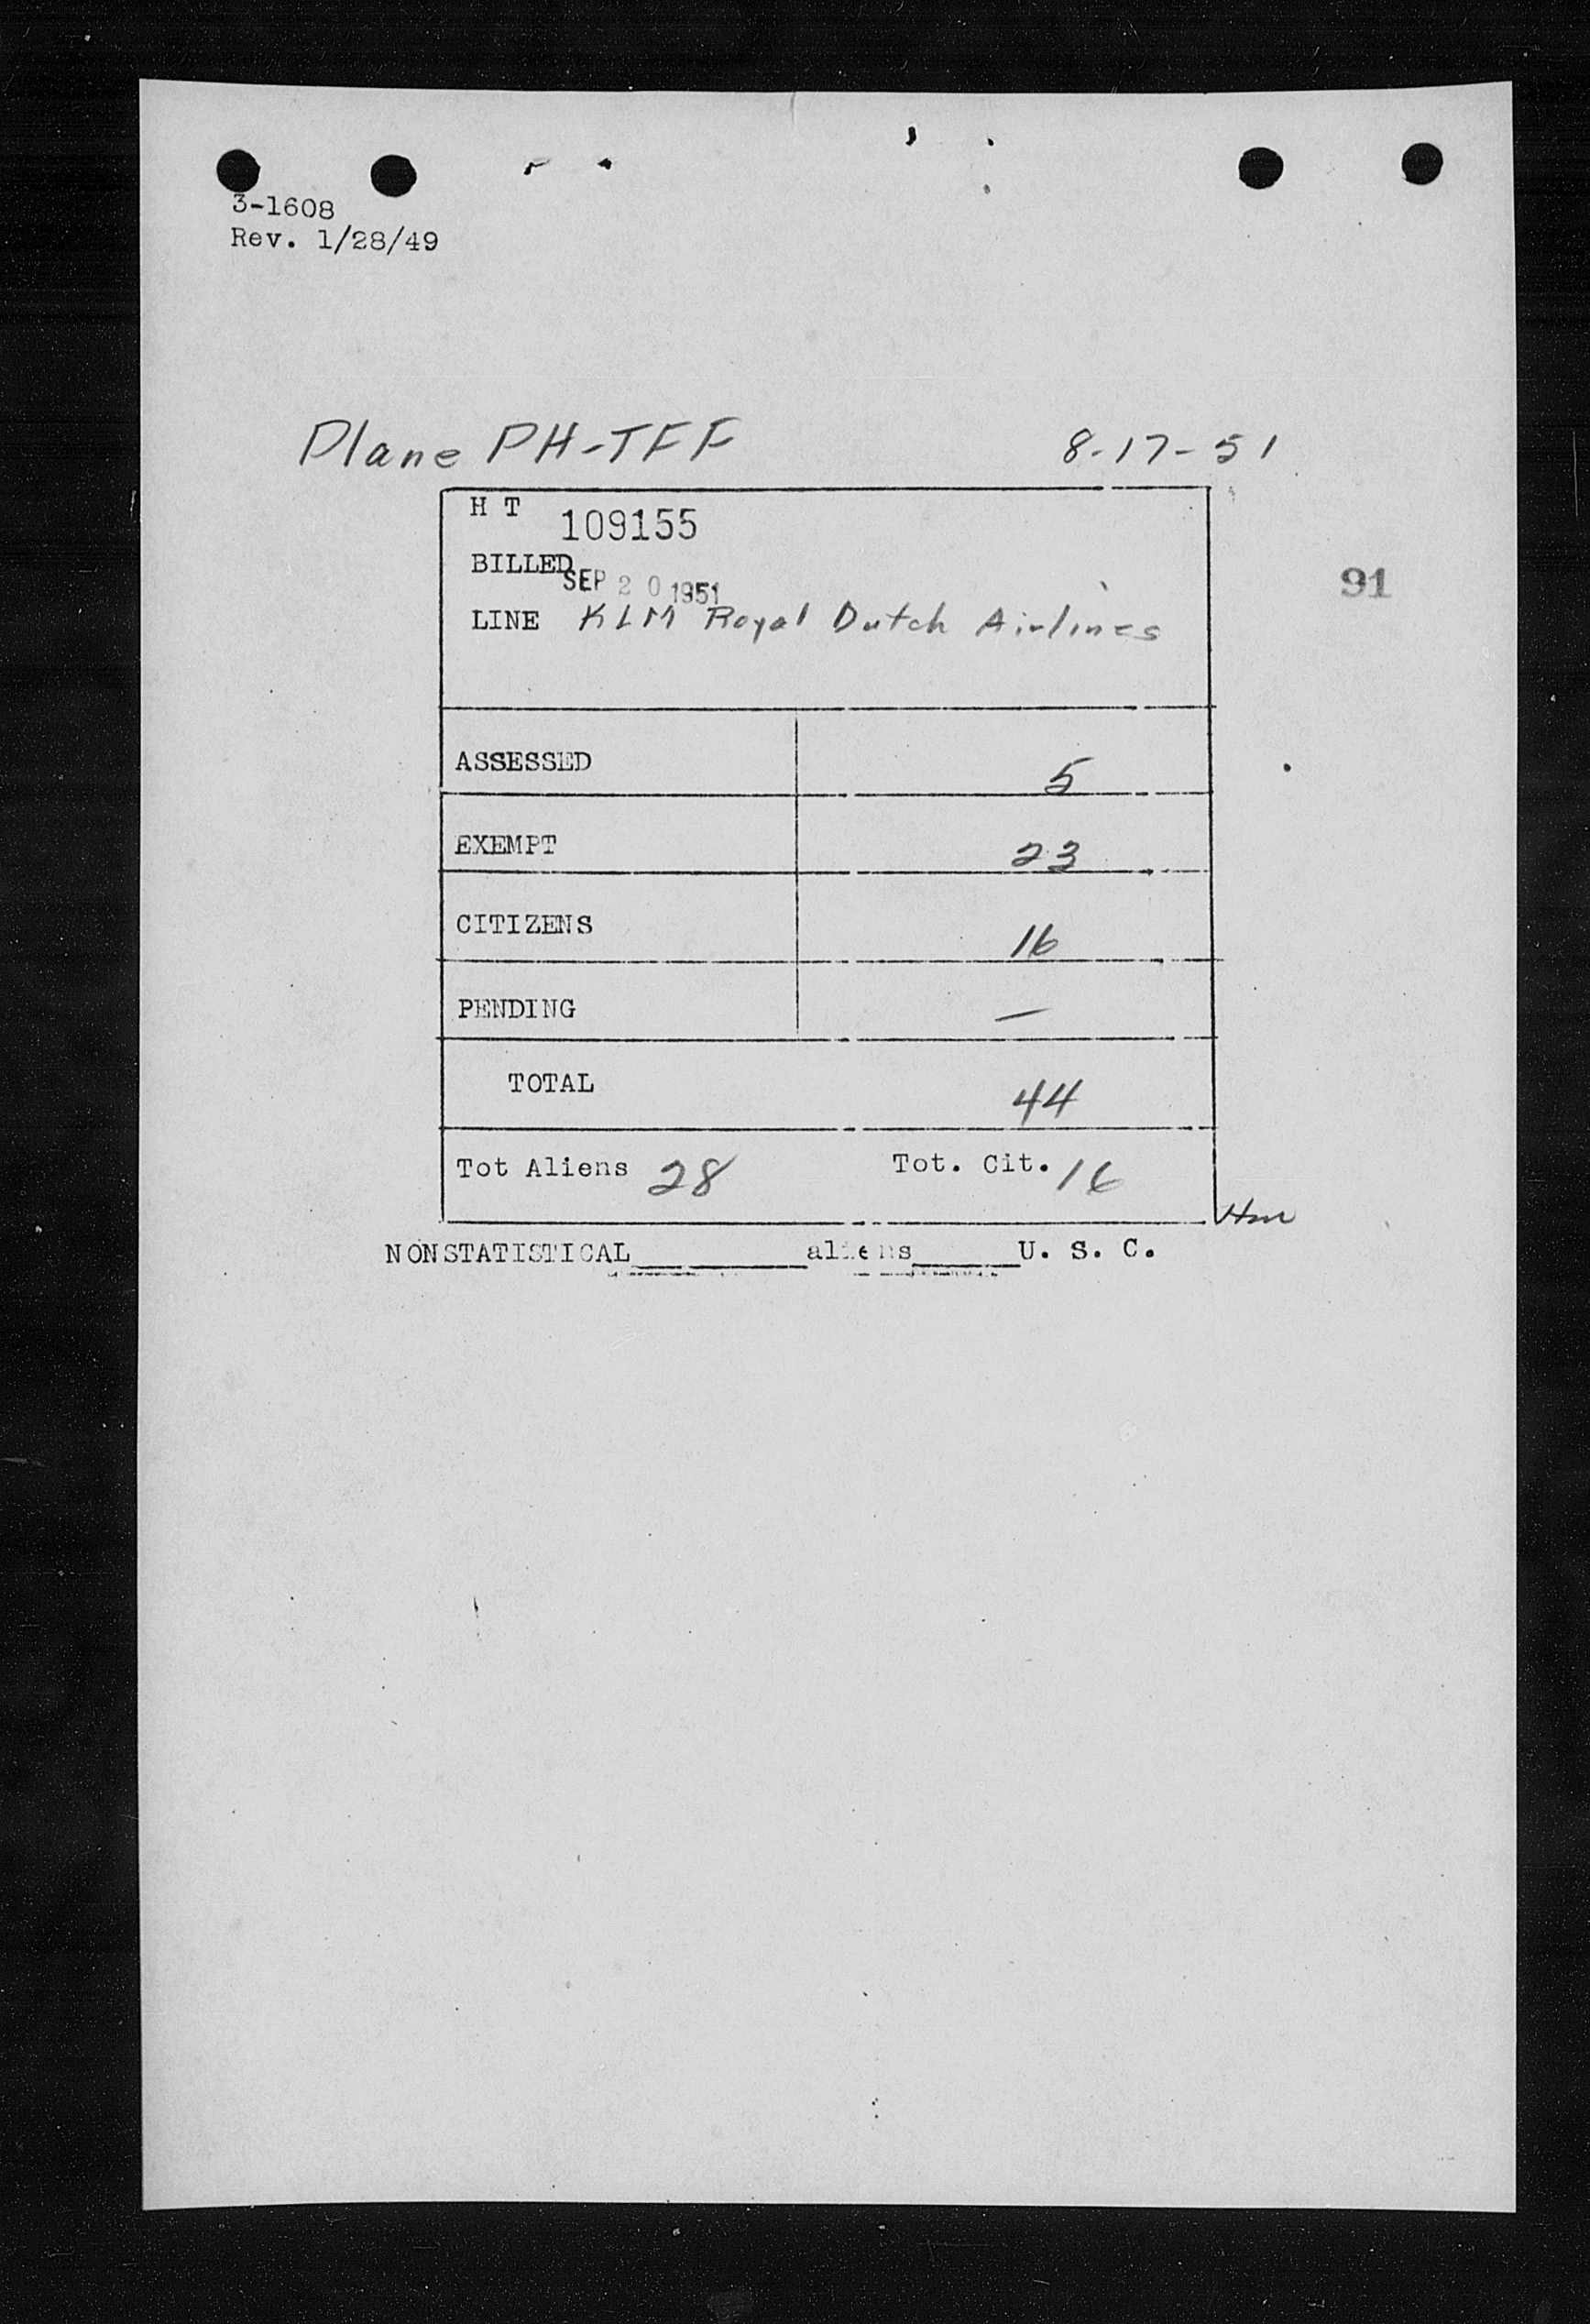 3-1608
Rev. 1/28/49
Plane PH-TFF 8-17-51
H T 109155
BILLED SEP 20 1951
91
LINE KLM Royal Dutch Airlines
ASSESSED 5
EXEMPT 23
CITIZENS 16
PENDING —
TOTAL 44
Tot Aliens 28 Tot. Cit. 16
NONSTATISTICAL______aliens______U. S. C.